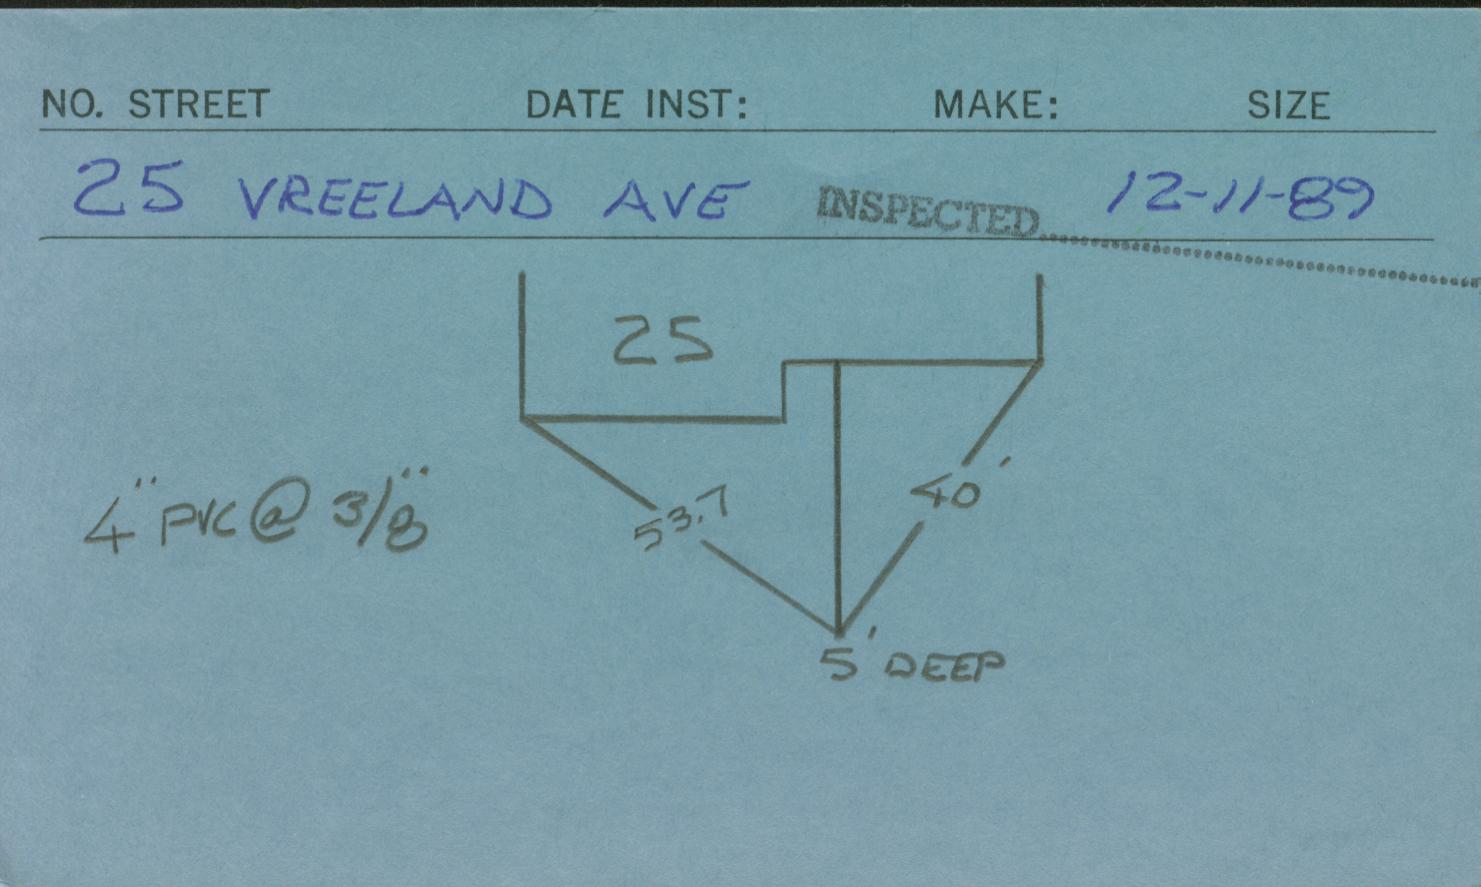 NO. STREET DATE INST: MAKE: SIZE
25 VREELAND AVE INSPECTED 12-11-89
25
4" PVC @ 3/8"
53.7
40'
5' DEEP